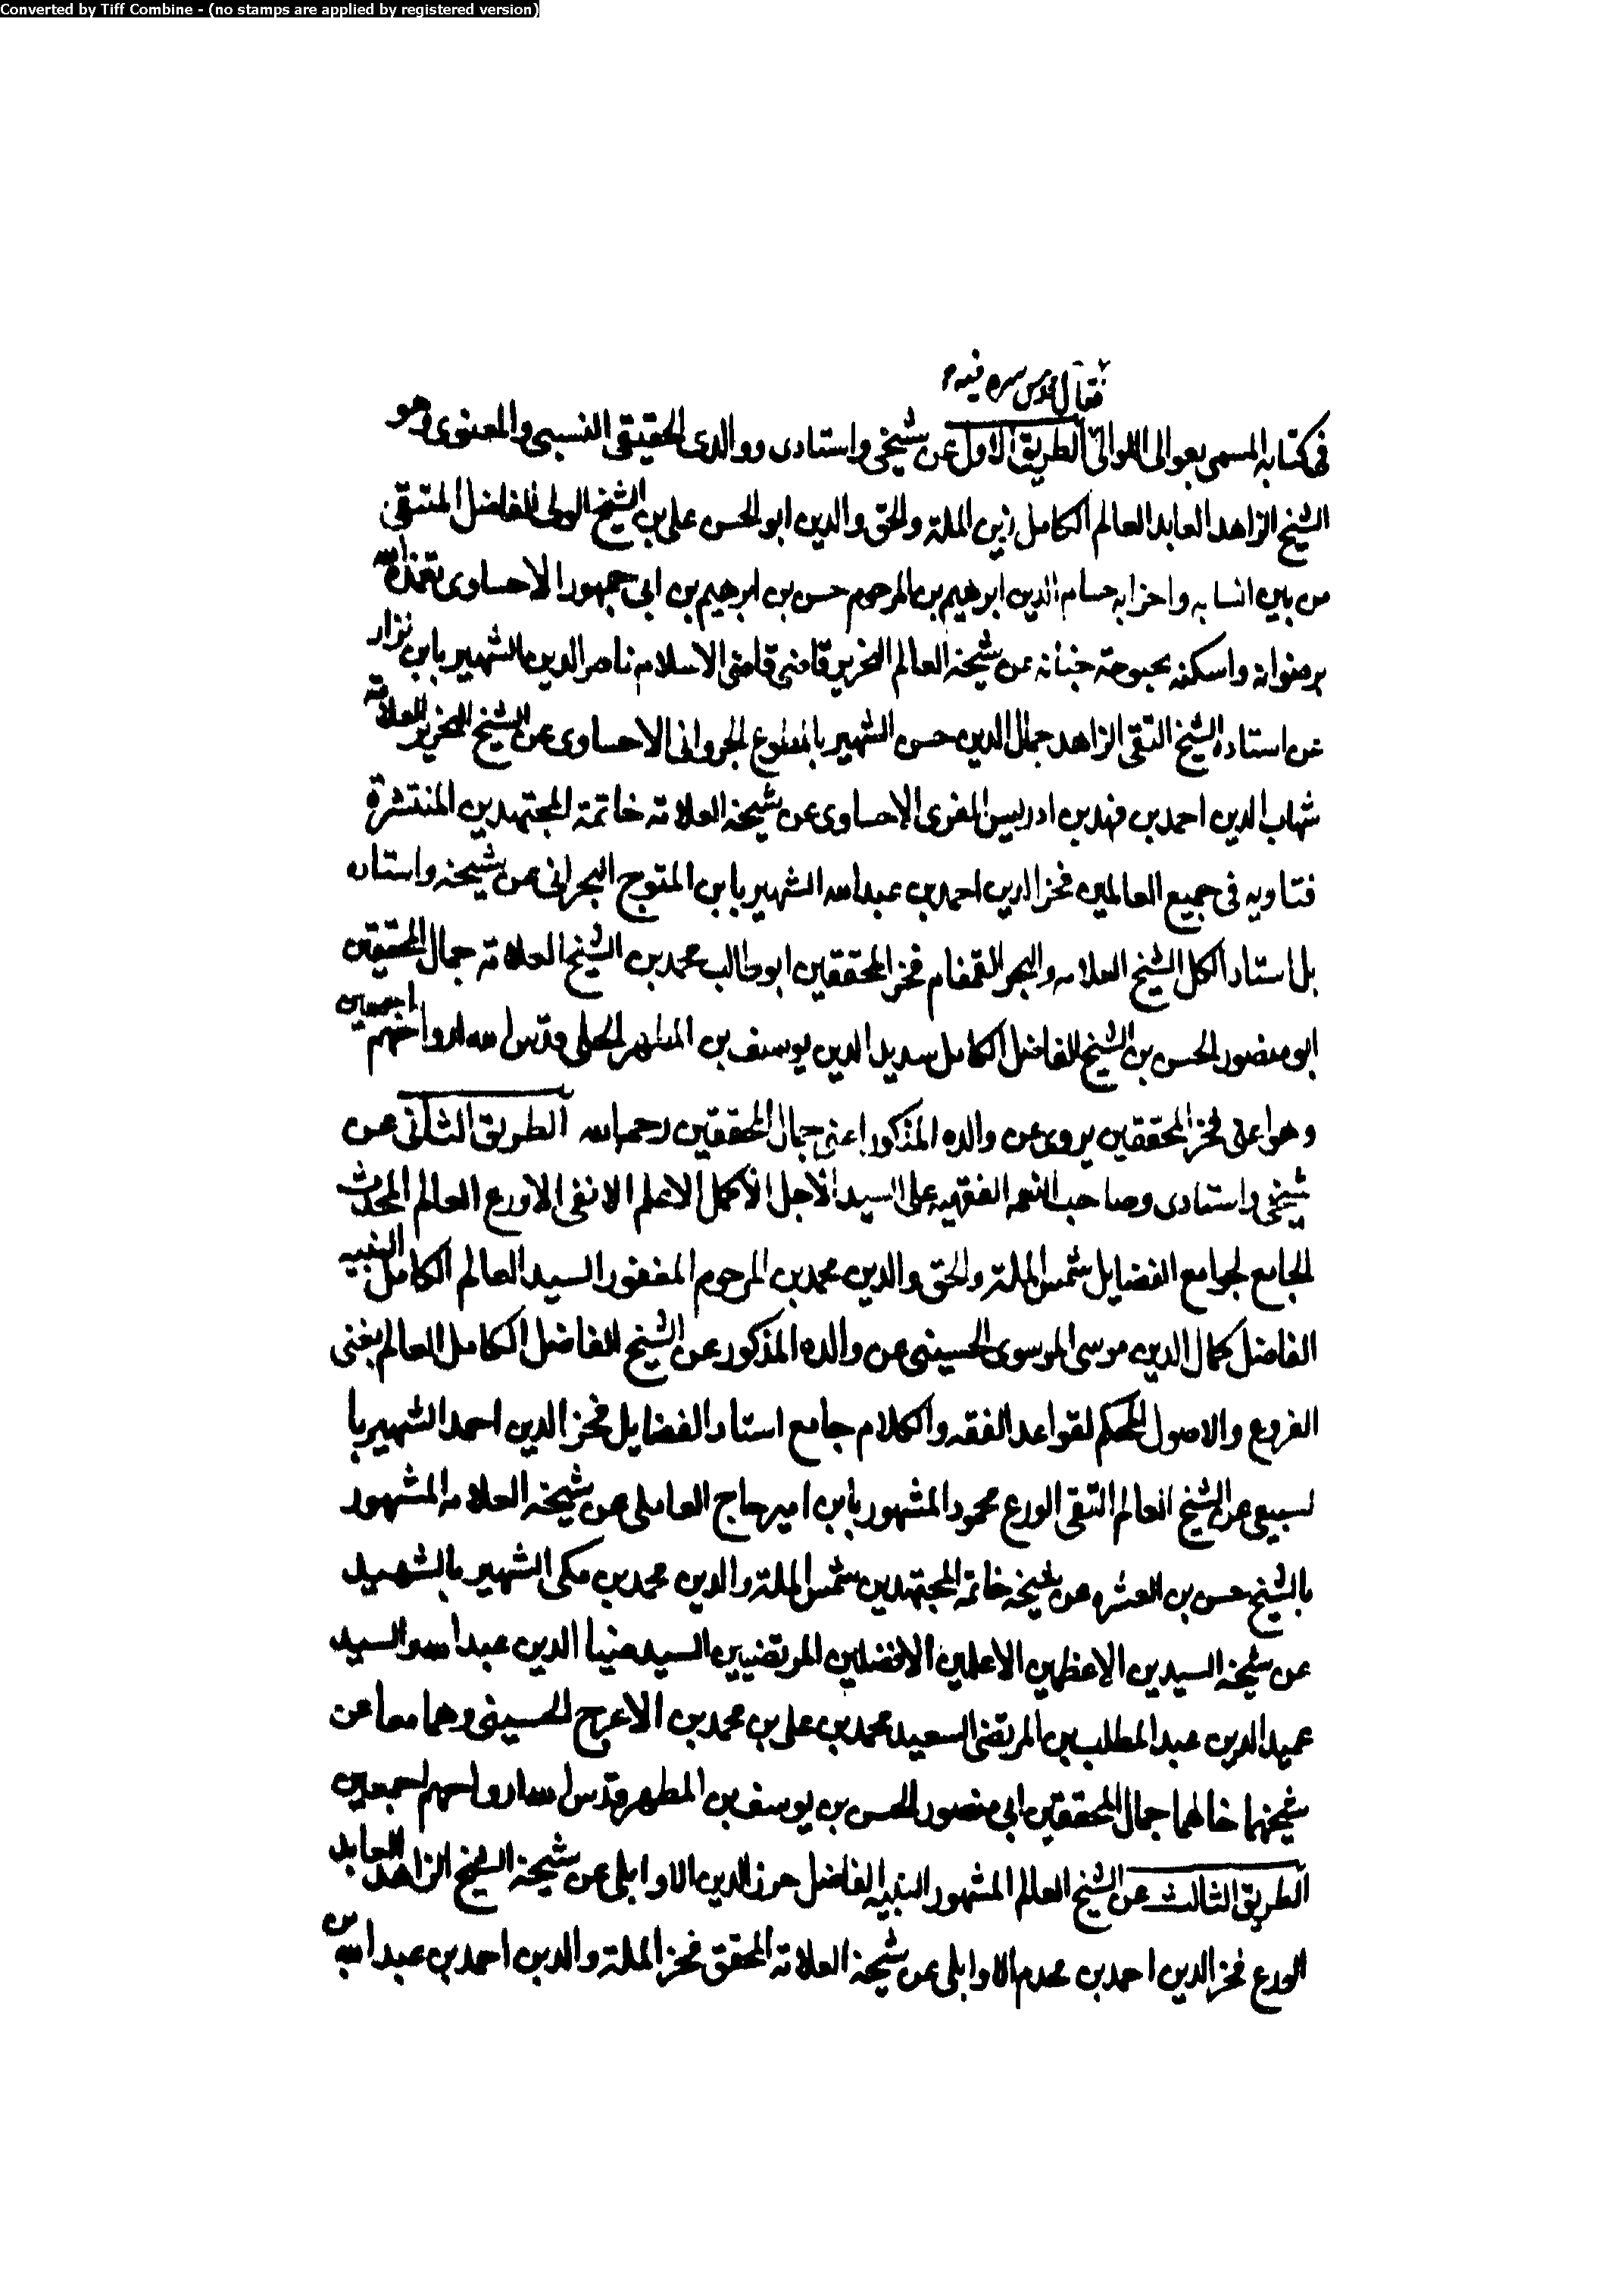 Converted by Tiff Combine - (no stamps are applied by registered version)
فقال قدس سره فيه
فى كتابه المسمى بعوالى اللوالى الطريق الاول عن شيخى واستادى ووالدى الحقيقى النسبى والمعنوى وهو
الشيخ الزاهد العابد العالم الكامل زين الملة والحق والدين ابو الحسن على بن الشيخ المولى الفاضل المتقى
من بين انسابه واحزابه حسام الدين ابرهيم بن المرحوم حسن بن ابرهيم بن ابى جمهور الاحساوى تغمده الله
برضوانه واسكنه بحبوحة جنانه عن شيخه العالم النحرير قاضى قاضى الاسلام ناصر الدين الشهير بابن نزار
عن استاده الشيخ التقى الزاهد جمال الدين حسن الشهير بالمطوع الجروانى الاحساوى عن الشيخ النحرير العلامة
شهاب الدين احمد بن فهد بن ادريس المقرى الاحساوى عن شيخه العلامة خاتمة المجتهدين المنتشرة
فتاويه فى جميع العالمين فخر الدين احمد بن عبدالله الشهير بابن المتوج البحرانى عن شيخه واستاده
بل استاد الكل الشيخ العلامه والبحر القمقام فخر المحققين ابو طالب محمد بن الشيخ العلامة جمال المحققين
ابو منصور الحسن بن الشيخ الفاضل الكامل سديد الدين يوسف بن المطهر الحلى قدس الله ارواحهم اجمعين
وهو اعنى فخر المحققين يروى عن والده المذكور اعنى جمال المحققين رحمه الله الطريق الثانى عن
شيخى واستادى وصاحب النعم الفقهيه على السيد الاجل الاكمل الاعلم الاتقى الاورع العالم المحدث
الجامع لجوامع الفضايل شمس الملة والحق والدين محمد بن المرحوم المغفور السيد العالم الكامل النبيه
الفاضل كمال الدين موسى الموسوى الحسينى عن والده المذكور عن الشيخ الفاضل الكامل العالم بفنى
الفروع والاصول المحكم لقواعد الفقه والكلام جامع استاد الفضايل فخر الدين احمد الشهير با
لسبيعى عن الشيخ العالم التقى الورع محمود المشهور بابن امير حاج العاملى عن شيخه العلامه المشهور
بالشيخ حسن بن العشره عن شيخه خاتمة المجتهدين شمس الملة والدين محمد بن مكى الشهير بالشهيد
عن شيخه السيدين الاعظمين الاعلمين الافضلين المرتضيين السيد ضيا الدين عبدالله والسيد
عميد الدين عبد المطلب بن المرتضى السعيد محمد بن على بن محمد بن الاعرج الحسينى وهما معا عن
شيخهما خالهما جمال المحققين ابى منصور الحسن بن يوسف بن المطهر قدس الله ارواحهم اجمعين
الطريق الثالث عن الشيخ العالم المشهور النبيه الفاضل حرز الدين الاوابلى عن شيخه الشيخ الزاهد العابد
الورع فخر الدين احمد بن مخدم الاوابلى عن شيخه العلامة المحقق فخر الملة والدين احمد بن عبدالله بن